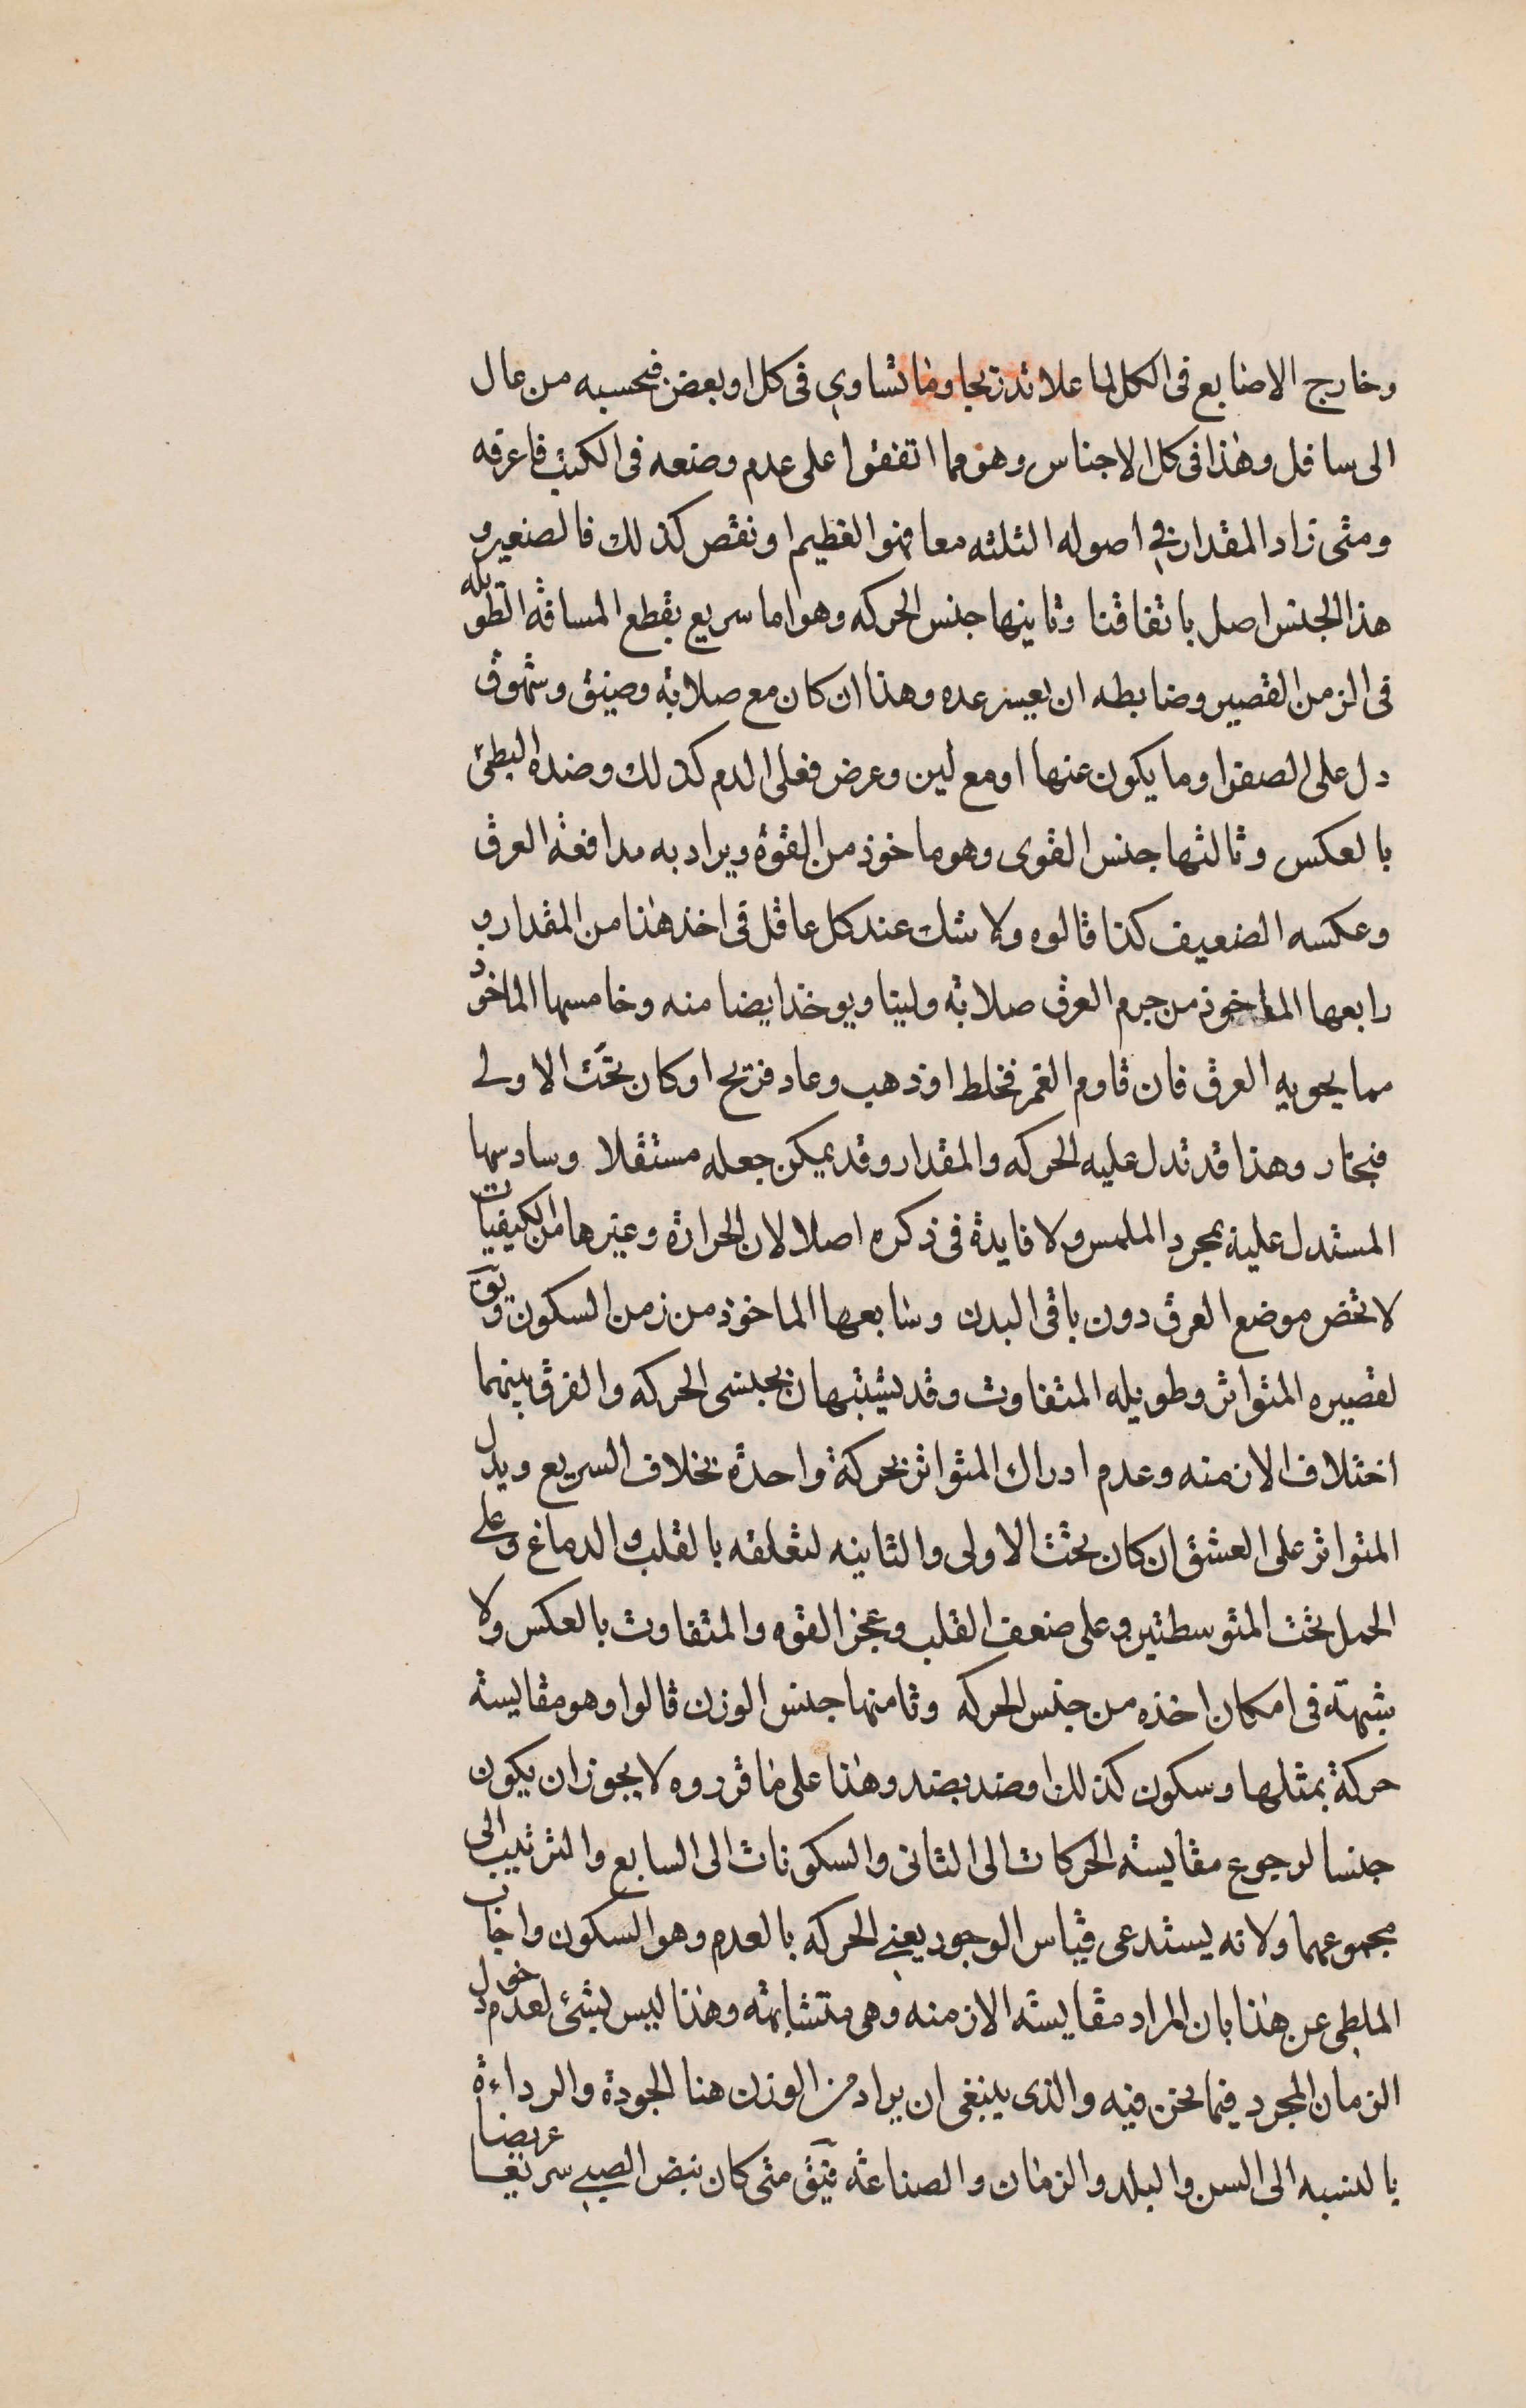 وخارج الاصابع فى الكل لما علا تدريجا وما تساوي فى كل او بعض فبحسبه من عال
الى سافل وهذا فى كل الاجناس وهو مما اتفقوا على عدم وضعه فى الكتب فاعرفه
ومتى زاد المقدار في اصوله الثلثه معا فهو العظيم او نقص كذلك فالصغير و
هذا الجنس اصل باتفاقنا وثانيها جنس الحركه وهو اما سريع يقطع المسافه الطويله
فى الزمن القصير وضابطه ان يعسر عده وهذا ان كان مع صلابه وضيق وشهوق
دل على الصفرا وما يكون عنها او مع لين وعرض فعلى الدم كذلك وضده البطئ
بالعكس وثالثها جنس القوى وهو ماخوذ من القوة ويراد به مدافعة العرق
وعكسه الضعيف كذا قالوه ولا شك عند كل عاقل فى اخذ هذا من المقدار و
رابعها الماخوذ من جرم العرق صلابه ولينا ويوخذ ايضا منه وخامسها الماخوذ
مما يحويه العرق فان قاوم الغمز فخلط او ذهب وعاد فريح او كان تحت الاولى
فبخار وهذا قد تدل عليه الحركه والمقدار وقد يمكن جعله مستقلا وسادسها
المستدل عليه بمجرد الملمس ولا فايدة فى ذكره اصلا لان الحرارة وغيرها من الكيفيات
لا تخص موضع العرق دون باقى البدن وسابعها الماخوذ من زمن السكون ويق
لقصيره المتواتر وطويله المتفاوت وقد يشتبهان بجنسى الحركه والفرق بينهما
اختلاف الازمنه وعدم ادراك المتواتر بحركة واحدة بخلاف السريع ويدل
المتواتر على العشق ان كان تحت الاولى والثانيه لتعلقه بالقلب والدماغ وعلى
الحمل تحت المتوسطتين وعلى ضعف القلب وعجز القوه والمتفاوت بالعكس ولا
شبهة فى امكان اخذه من جنس الحركه وثامنها جنس الوزن قالوا وهو مقايسة
حركة بمثلها وسكون كذلك او ضد بضد وهذا على ما قرروه لا يجوز ان يكون
جنسا لرجوع مقايسة الحركات الى الثانى والسكونات الى السابع والترتيب الى
مجموعهما ولانه يستدعى قياس الوجود يعني الحركه بالعدم وهو السكون واجاب
الملطى عن هذا بان المراد مقايسة الازمنه وهى متشابهه وهذا ليس بشئ لعدم دخول
الزمان المجرد فيما نحن فيه والذى ينبغى ان يراد من الوزن هنا الجودة والرداءة
بالنسبه الى السن والبلد والزمان والصناعة فيق متى كان نبض الصبي سريعا عريضا